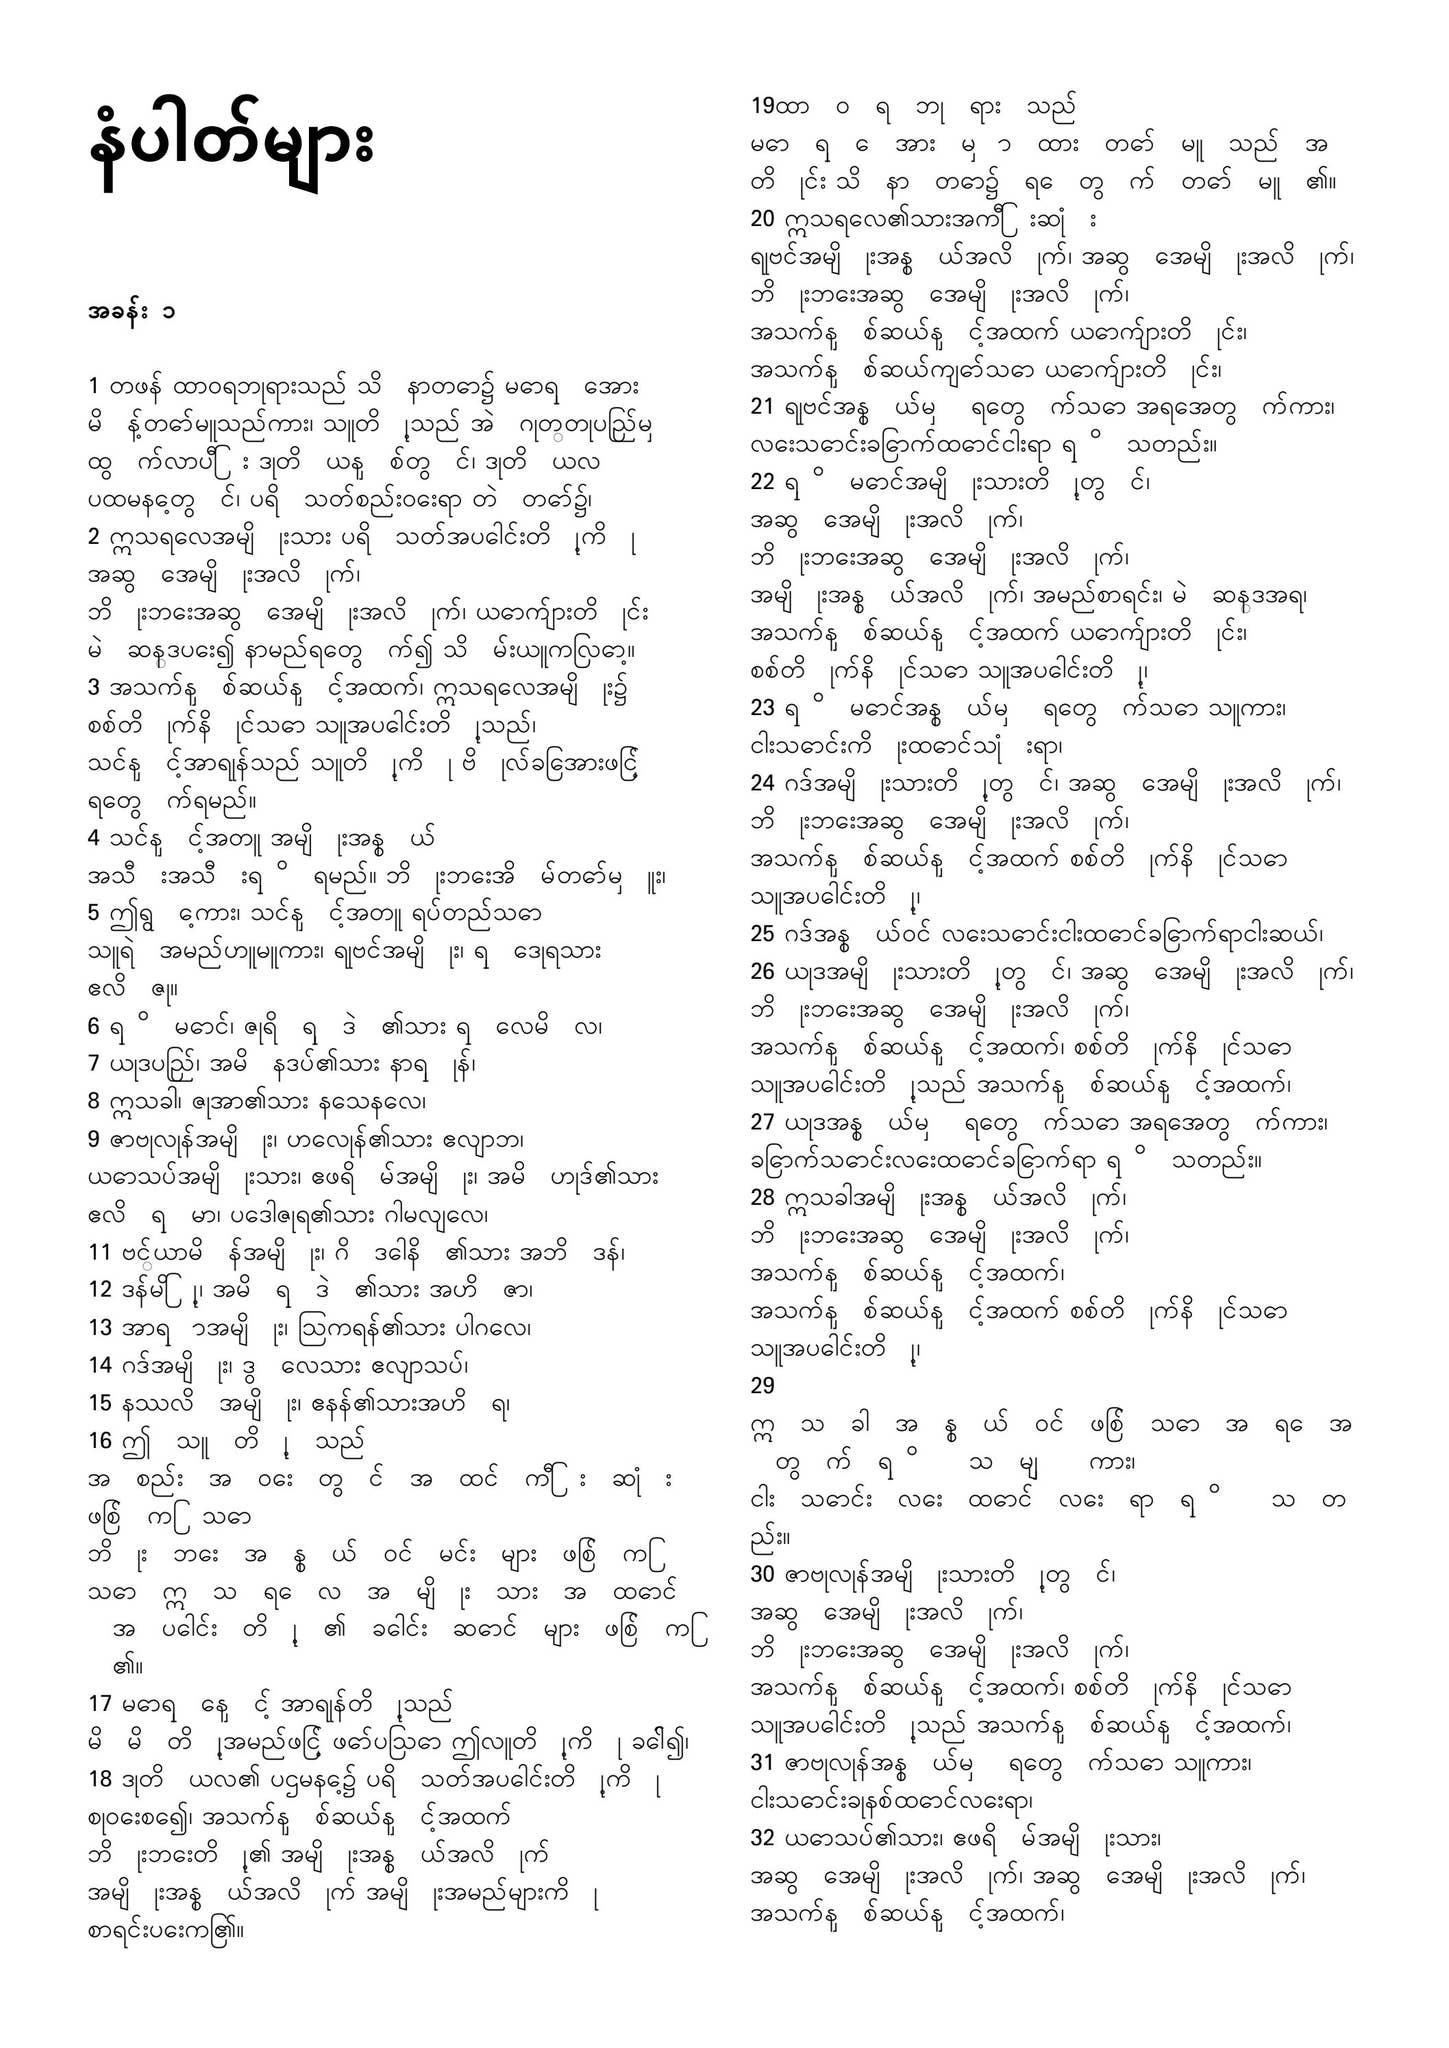 နံပါတ်များ
အခန်း ၁
1 တဖန် ထာဝရဘုရားသည် သိနာတော၌ မောရှေအား
မိန့်တော်မူသည်ကား၊ သူတို့သည် အဲဂုတ္တုပြည်မှ
ထွက်လာပြီး ဒုတိယနှစ်တွင်၊ ဒုတိယလ
ပထမနေ့တွင်၊ ပရိသတ်စည်းဝေးရာ တဲတော်၌၊
2 ဣသရေလအမျိုးသား ပရိသတ်အပေါင်းတို့ကို
အဆွေအမျိုးအလိုက်၊
ဘိုးဘေးအဆွေအမျိုးအလိုက်၊ ယောက်ျားတိုင်း
မဲဆန္ဒပေး၍ နာမည်ရေတွက်၍ သိမ်းယူကြလော့။
3 အသက်နှစ်ဆယ်နှင့်အထက်၊ ဣသရေလအမျိုး၌
စစ်တိုက်နိုင်သော သူအပေါင်းတို့သည်၊
သင်နှင့်အာရုန်သည် သူတို့ကို ဗိုလ်ခြေအားဖြင့်
ရေတွက်ရမည်။
4 သင်နှင့်အတူ အမျိုးအနွယ်
အသီးအသီးရှိရမည်။ ဘိုးဘေးအိမ်တော်မှူး၊
5 ဤရွေ့ကား၊ သင်နှင့်အတူ ရပ်တည်သော
သူရဲအမည်ဟူမူကား၊ ရုဗင်အမျိုး၊ ရှေဒုရသား
ဧလိဇု။
6 ရှိမောင်၊ ဇုရိရှဒဲ၏သား ရှေလမိလ၊
7 ယုဒပြည်၊ အမိနဒပ်၏သား နာရှုန်၊
8 ဣသခါ၊ ဇုအာ၏သား နသနေလ၊
9 ဇာဗုလုန်အမျိုး၊ ဟေလုန်၏သား ဧလျာဘ၊
ယောသပ်အမျိုးသား၊ ဧဖရိမ်အမျိုး၊ အမိဟုဒ်၏သား
ဧလိရှမာ၊ ပဒေါဇုရ၏သား ဂါမလျေလ၊
11 ဗင်္ယာမိန်အမျိုး၊ ဂိဒေါနိ၏သား အဘိဒန်၊
12 ဒန်မြို့၊ အမိရှဒဲ၏သား အဟိဇာ၊
13 အာရှာအမျိုး၊ သြကရန်၏သား ပါဂလေ၊
14 ဂဒ်အမျိုး၊ ဒွေလသား ဧလျာသပ်၊
15 နဿလိအမျိုး၊ ဧနန်၏သားအဟိရ၊
16 ဤ သူ တို့ သည်
အ စည်း အ ဝေး တွင် အ ထင် ကြီး ဆုံး
ဖြစ် ကြ သော
ဘိုး ဘေး အ နွယ် ဝင် မင်း များ ဖြစ် ကြ
သော ဣ သ ရေ လ အ မျိုး သား အ ထောင်
အ ပေါင်း တို့ ၏ ခေါင်း ဆောင် များ ဖြစ် ကြ
၏။
17 မောရှေနှင့် အာရုန်တို့သည်
မိမိတို့အမည်ဖြင့် ဖော်ပြသော ဤလူတို့ကို ခေါ်၍၊
18 ဒုတိယလ၏ ပဌမနေ့၌ ပရိသတ်အပေါင်းတို့ကို
စုဝေးစေ၍၊ အသက်နှစ်ဆယ်နှင့်အထက်
ဘိုးဘေးတို့၏ အမျိုးအနွယ်အလိုက်
အမျိုးအနွယ်အလိုက် အမျိုးအမည်များကို
စာရင်းပေးကြ၏။
19ထာ ဝ ရ ဘု ရား သည်
မော ရှေ အား မှာ ထား တော် မူ သည် အ
တိုင်း သိ နာ တော၌ ရေ တွက် တော် မူ ၏။
20 ဣသရေလ၏သားအကြီးဆုံး
ရုဗင်အမျိုးအနွယ်အလိုက်၊ အဆွေအမျိုးအလိုက်၊
ဘိုးဘေးအဆွေအမျိုးအလိုက်၊
အသက်နှစ်ဆယ်နှင့်အထက် ယောက်ျားတိုင်း၊
အသက်နှစ်ဆယ်ကျော်သော ယောက်ျားတိုင်း၊
21 ရုဗင်အနွယ်မှ ရေတွက်သော အရေအတွက်ကား၊
လေးသောင်းခြောက်ထောင်ငါးရာ ရှိသတည်း။
22 ရှိမောင်အမျိုးသားတို့တွင်၊
အဆွေအမျိုးအလိုက်၊
ဘိုးဘေးအဆွေအမျိုးအလိုက်၊
အမျိုးအနွယ်အလိုက်၊ အမည်စာရင်း၊ မဲဆန္ဒအရ၊
အသက်နှစ်ဆယ်နှင့်အထက် ယောက်ျားတိုင်း၊
စစ်တိုက်နိုင်သော သူအပေါင်းတို့၊
23 ရှိမောင်အနွယ်မှ ရေတွက်သော သူကား၊
ငါးသောင်းကိုးထောင်သုံးရာ၊
24 ဂဒ်အမျိုးသားတို့တွင်၊ အဆွေအမျိုးအလိုက်၊
ဘိုးဘေးအဆွေအမျိုးအလိုက်၊
အသက်နှစ်ဆယ်နှင့်အထက် စစ်တိုက်နိုင်သော
သူအပေါင်းတို့၊
25 ဂဒ်အနွယ်ဝင် လေးသောင်းငါးထောင်ခြောက်ရာငါးဆယ်၊
26 ယုဒအမျိုးသားတို့တွင်၊ အဆွေအမျိုးအလိုက်၊
ဘိုးဘေးအဆွေအမျိုးအလိုက်၊
အသက်နှစ်ဆယ်နှင့်အထက်၊ စစ်တိုက်နိုင်သော
သူအပေါင်းတို့သည် အသက်နှစ်ဆယ်နှင့်အထက်၊
27 ယုဒအနွယ်မှ ရေတွက်သော အရေအတွက်ကား၊
ခြောက်သောင်းလေးထောင်ခြောက်ရာ ရှိသတည်း။
28 ဣသခါအမျိုးအနွယ်အလိုက်၊
ဘိုးဘေးအဆွေအမျိုးအလိုက်၊
အသက်နှစ်ဆယ်နှင့်အထက်၊
အသက်နှစ်ဆယ်နှင့်အထက် စစ်တိုက်နိုင်သော
သူအပေါင်းတို့၊
29
ဣ သ ခါ အ နွယ် ဝင် ဖြစ် သော အ ရေ အ
တွက် ရှိ သ မျှ ကား၊
ငါး သောင်း လေး ထောင် လေး ရာ ရှိ သ တ
ည်း။
30 ဇာဗုလုန်အမျိုးသားတို့တွင်၊
အဆွေအမျိုးအလိုက်၊
ဘိုးဘေးအဆွေအမျိုးအလိုက်၊
အသက်နှစ်ဆယ်နှင့်အထက်၊ စစ်တိုက်နိုင်သော
သူအပေါင်းတို့သည် အသက်နှစ်ဆယ်နှင့်အထက်၊
31 ဇာဗုလုန်အနွယ်မှ ရေတွက်သော သူကား၊
ငါးသောင်းခုနစ်ထောင်လေးရာ၊
32 ယောသပ်၏သား၊ ဧဖရိမ်အမျိုးသား၊
အဆွေအမျိုးအလိုက်၊ အဆွေအမျိုးအလိုက်၊
အသက်နှစ်ဆယ်နှင့်အထက်၊